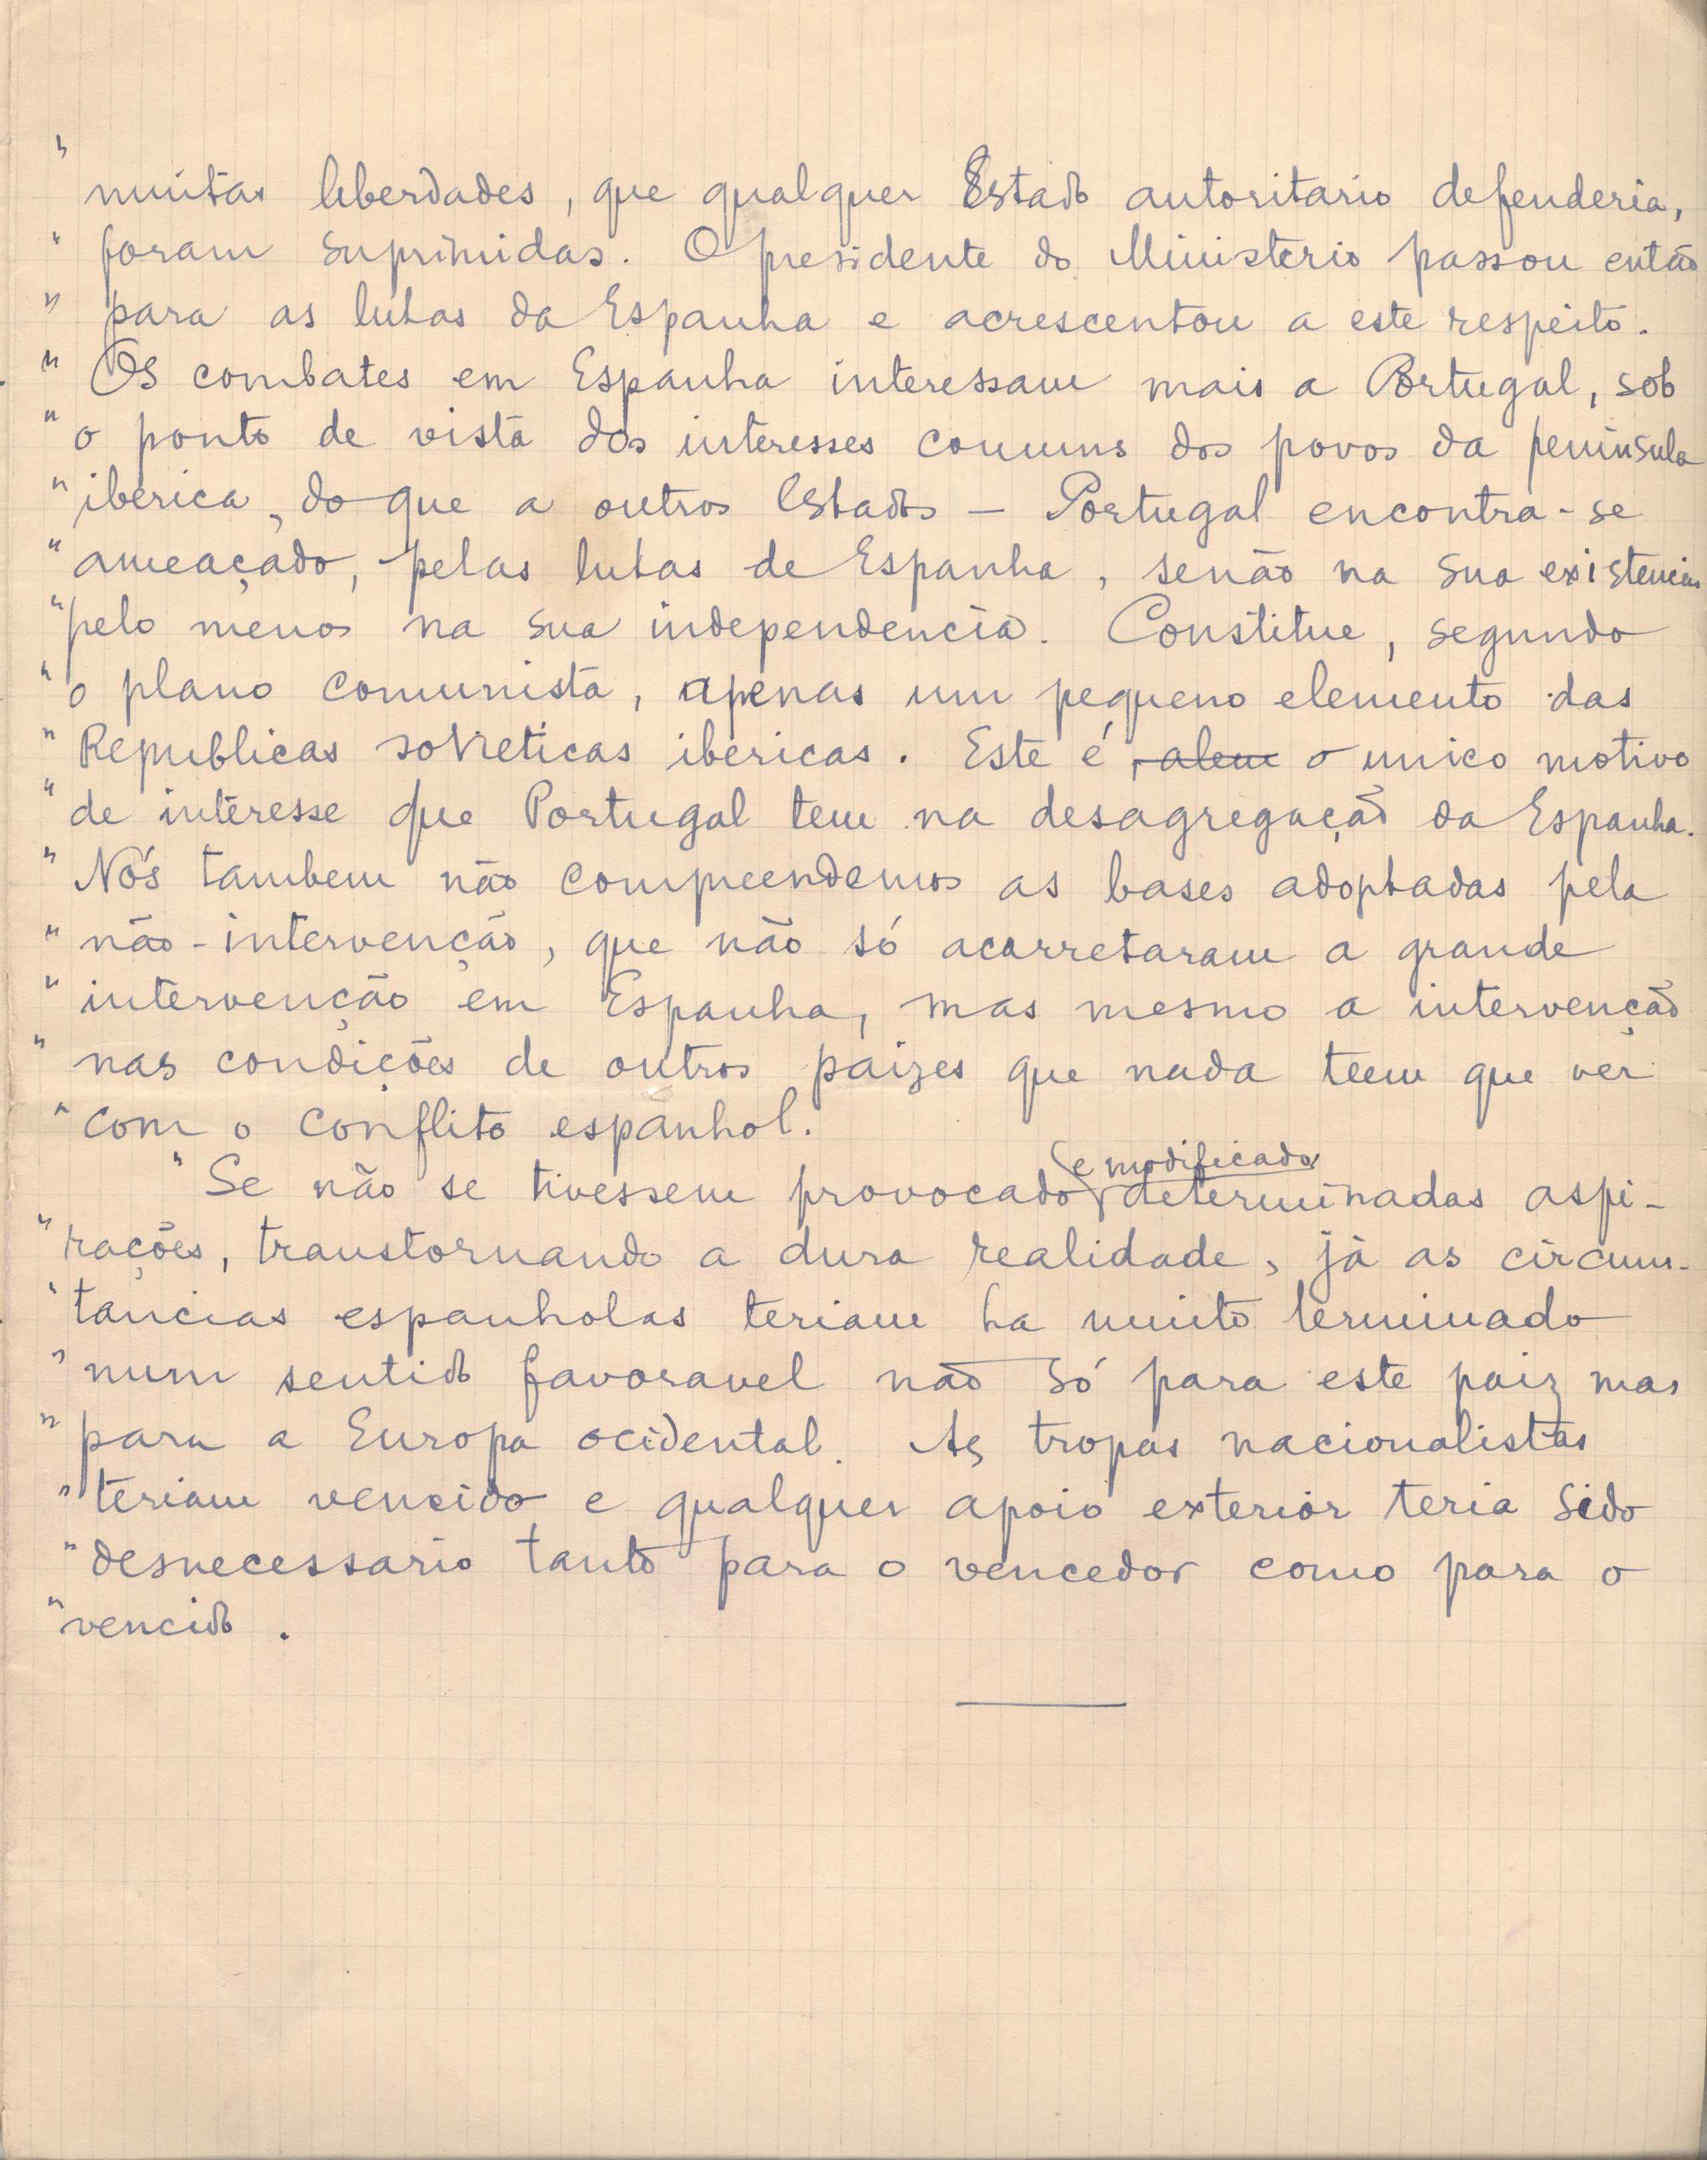 " muitas liberdades, que qualquer Estado autoritario defenderia,
" foram suprimidas. O presidente do Ministerio passou então
" para as lutas da Espanha e acrescentou a este respeito.
" Os combates em Espanha interessam mais a Portugal, sob
" o ponto de vista dos interesses comuns dos povos da peninsula
" iberica, do que a outros Estados — Portugal encontra-se
" ameaçado, pelas lutas de Espanha, senão na sua existencia
" pelo menos na sua independencia. Constitue, segundo
" o plano comunista, apenas um pequeno elemento das
" Republicas sovieticas ibericas. Este é, alem o unico motivo
" de interesse que Portugal tem na desagregação da Espanha.
" Nós tambem não compreendemos as bases adoptadas pela
" não-intervenção, que não só acarretaram a grande
" intervenção em Espanha, mas mesmo a intervenção
" nas condições de outros paizes que nada teem que ver
" com o conflito espanhol.
e modificado
" Se não se tivessem provocado determinadas aspi-
" rações, transtornando a dura realidade, já as circuns-
" tancias espanholas teriam ha muito terminado
" num sentido favoravel não só para este paiz mas
" para a Europa ocidental. As tropas nacionalistas
" teriam vencido e qualquer apoio exterior teria sido
" desnecessario tanto para o vencedor como para o
" vencido.